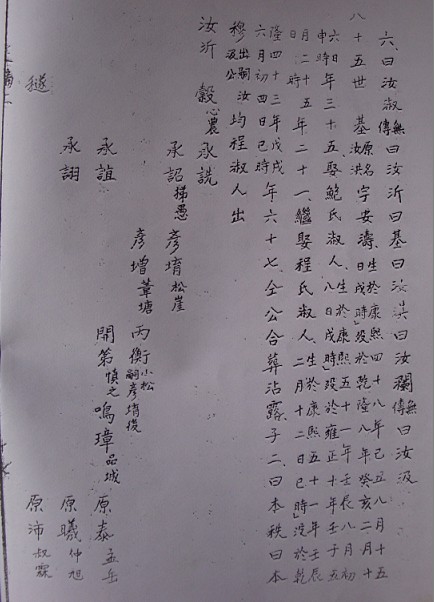 六、曰汝淑無傳曰汝沂曰基曰汝淇曰汝瀾無傳曰汝汲
八十五世 基原名汝洪字安濤、生於康熙四十八年己丑八月十五日戌時歿於乾隆八年癸亥二月十六日申時年三十五、娶鮑氏淑人、生於康熙五十一年壬辰八月初八日戌時歿於雍正十年壬子五月二十五年二十一、繼娶程氏淑人、生於康熙五十一年壬辰二月十二日巳時沒於乾
隆四十三年戊戌六月初四日巳時年六十七、仝公合葬沾露、子二、曰本秩曰本
穆出嗣汲公汝均程淑人出
汝沂 榖心農 承詵
承詔 彥堉松崖
彥增葦塘 丙衡小松嗣彥堉後
承誼 開第慎之 鳴璋品城 原泰孟岳
承詡 原曦仲旭
原沛叔霖